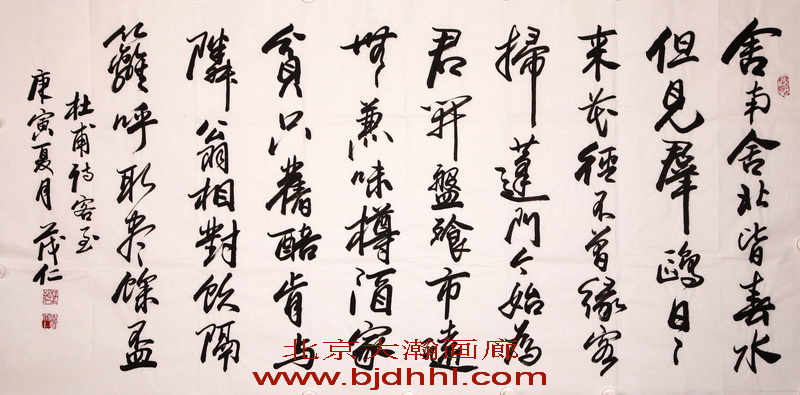 舍南舍北皆春水
但見群鷗日〻
来花徑不曾緣客
掃蓬門今始為
君開盤飧市遠
無蒹味樽酒家
貧只舊醅肯与
隣翁相對飲隔
籬呼取尽馀盃
杜甫诗客至
庚寅夏月 茂仁
北京大瀚画廊
www.bjdhhl.com